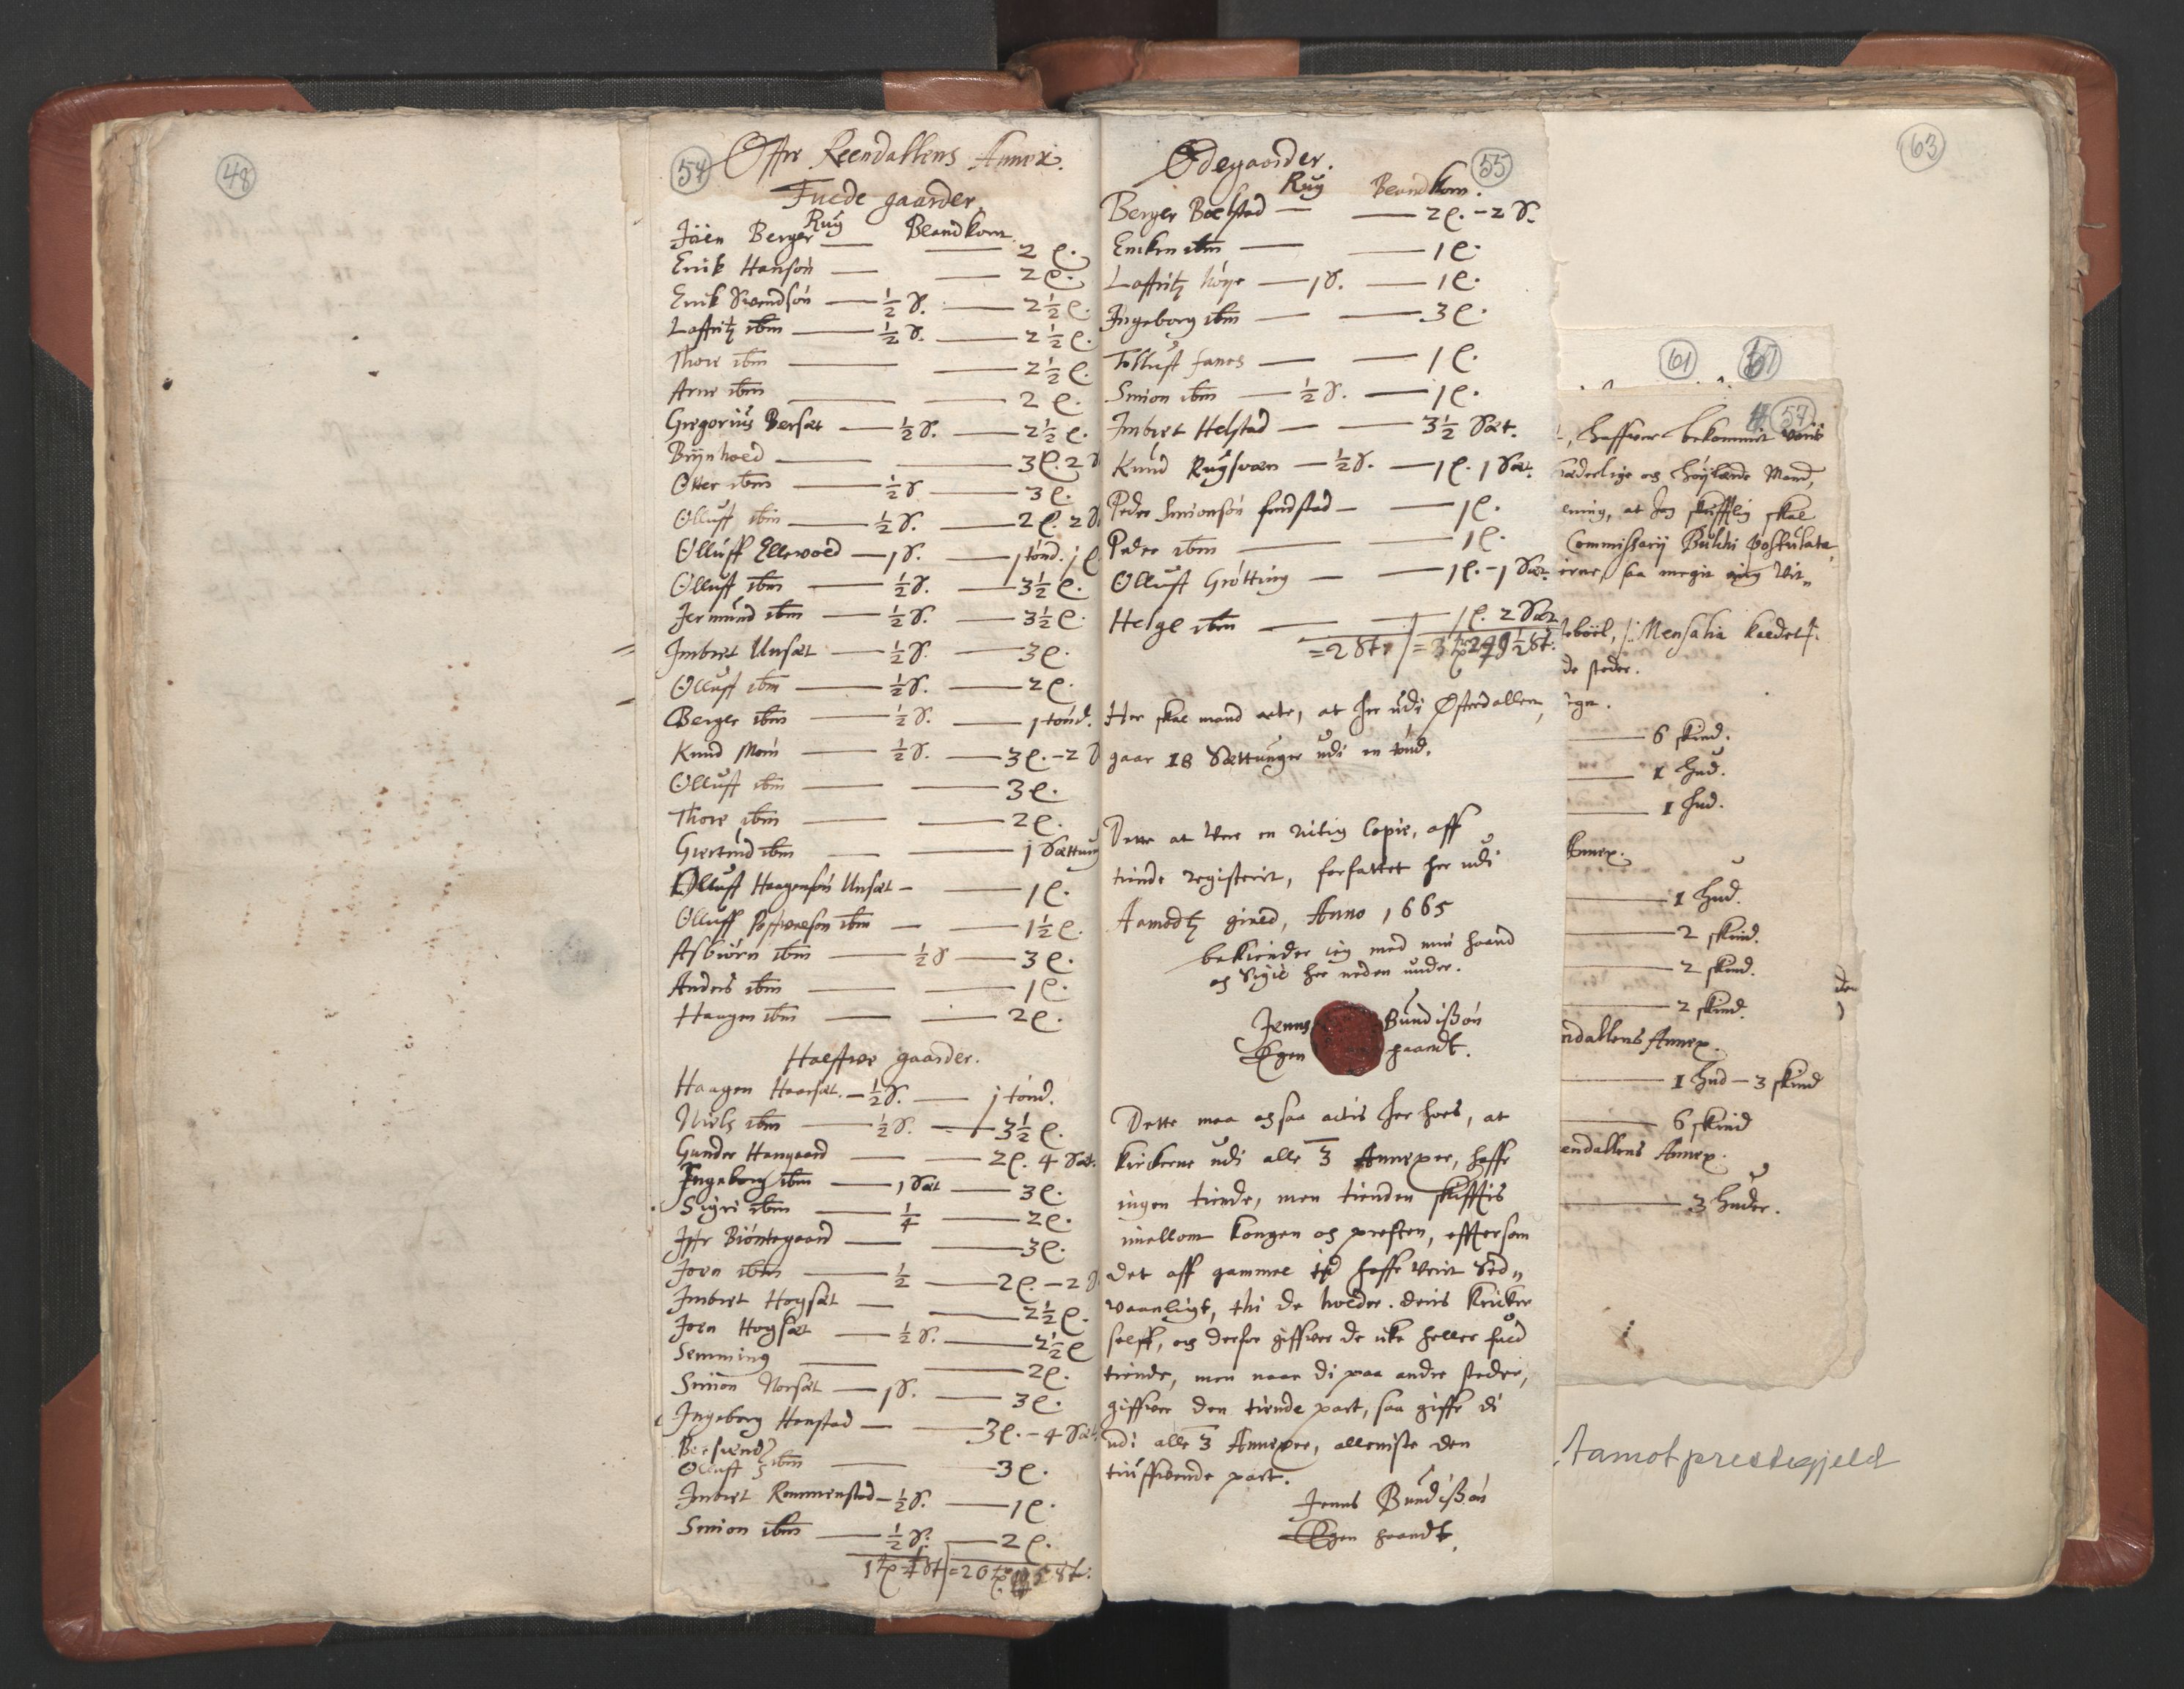 48
54
Øffre Reendallens Annex.
Fuelde gaarder.
Rug Blandkorn.
Jöen Berger — — 2 ℓ.
Erik Hansön — — 2 ℓ.
Erik Svendsön — ½ S. — 2½ ℓ.
Laffritz ibm — ½ S. — 2½ ℓ.
Thore ibm — 2½ ℓ.
Arne ibm — — 2 ℓ.
Gregorius Bersæt — ½ S. — 2½ ℓ.
Brÿnhoeld — — 3 ℓ. 2 S
Otter ibm — ½ S — 3 ℓ.
Olluff ibm — ½ S. — 2 ℓ. 2 S
Olluff Ellevold — 1 S. — 1 tönd. 1 ℓ
Olluff ibm — ½ S. — 3½ ℓ.
Jermund ibm — ½ S. — 3½ ℓ.
Imbret Unsæt — ½ S. — 3 ℓ.
Olluff ibm — ½ S. — 2 ℓ.
Berger ibm — ½ S. — 1 tönd.
Knud Moen — ½ S. — 3 ℓ. - 2 S
Olluff ibm — — 3 ℓ.
Thore ibm — — 2 ℓ.
Giertrud ibm — — 1 Sættung
Olluff Haagensön Unsæt — — 1 ℓ.
Olluff ibm — — 1½ ℓ.
Asbiörn ibm — ½ S — 3 ℓ.
Anders ibm — — 1 ℓ.
Haagen ibm — — 2 ℓ.
Halffve gaarder.
Haagen Haarsæt. — ½ S. — 1 tönd.
Niels ibm — ½ S. — 3½ ℓ.
Gunder Haugaard — — 2 ℓ. 4 Sæt.
Ingeborg ibm — 1 Sæt — 3 ℓ.
Sigri ibm — ¼ — 2 ℓ.
Iffr Biöntegaard — — 3 ℓ.
Joen ibm — ½ — 2 ℓ. - 2 S.
Imbret Hogsæt — — 2½ ℓ.
Joen Hogsæt — ½ S. — 2½ ℓ
Semming — — 2 ℓ.
Simon Norsæt — 1 S. — 3 ℓ.
Ingeborg Hanestad — — 3 ℓ. - 4 Sæt.
Bersvend
Olluff ibm — — 3 ℓ.
Imbret Rommenstad — ½ S. — 1 ℓ.
Simon ibm — ½ S. — 2 ℓ.
55
Ödegaarder.
Rug Blandkorn.
Berger Bolstad — — 2 ℓ. - 2 S.
Encken ibm — — 1 ℓ.
Laffritz höye — 1 S. — 1 ℓ.
Ingeborg ibm — — 3 ℓ.
Tolluff fanes — — 1 ℓ.
Simon ibm — ½ S. — 1 ℓ.
Imbret Helstad — — 3½ Sæt.
Knud Rugsveen — ½ S. — 1 ℓ. 1 Sæt.
Peder Simonsön findstad — — 1 ℓ.
Peder ibm — — 1 ℓ.
Olluff Grötting — — 1 ℓ. - 1 Sæt.
Helge ibm — — 1 ℓ. 2 Sæt
Her skal mand acte, at her udi Østerdallen,
gaar 18 Sættunger udi en tönd.
Dette at were en rictig Copie, aff
tiende registerit, forfattet her udi
Aamodtz gield, Anno 1665
bekiender ieg med min haand
og Sigil her neden under.
Jenns Bundißön
Egen haandt.
Dette maa og saa actis her hoes, at
kirckerne udi alle 3 Annexer, haffe
ingen tiende, men tienden skifftis
imellom kongen og presten, effter som
det aff gammel tid haffe verit Sed„
vaanligt, thi de holder deris kircker
selff, og derfor giffver de icke heller fuld
tiende, men naar di paa andre steder,
giffver den tiende part, saa giffe di
udi alle 3 Annexer, alleniste den
tiuffvende part.
Jenns Bundißön
Egen haandt.
63
61
57
, haffver bekommit voris
hæderlige og höylærde Mand,
ening, at Jeg skrifftlig skal
Commissarij postulata
erne, saa megit mig vit„
ebóel, /: Mensalia kaldet :/
de steder.
6 skind.
1 hud.
1 hud.
Annex.
1 hud.
2 skind.
2 skind.
2 skind.
ndallens Annex.
1 hud — 3 skind
6 skind
endallens Annex.
3 huder.
den
Aamot prestegjeld